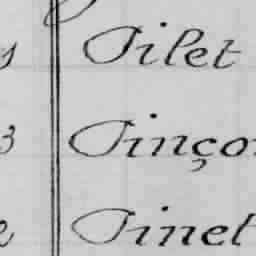 Pilet
3 Pinço
Pinet